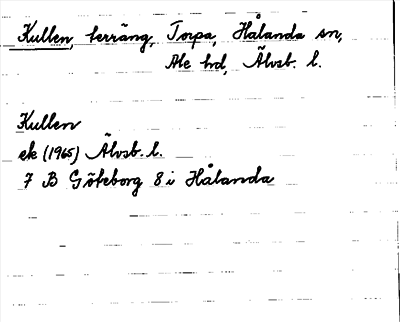 Kullen, terräng, Torpa, Hålanda sn,
Ale hd, Älvsb. l.
Kullen
ek (1965) Älvsb. l.
7 B Göteborg 8 i Hålanda